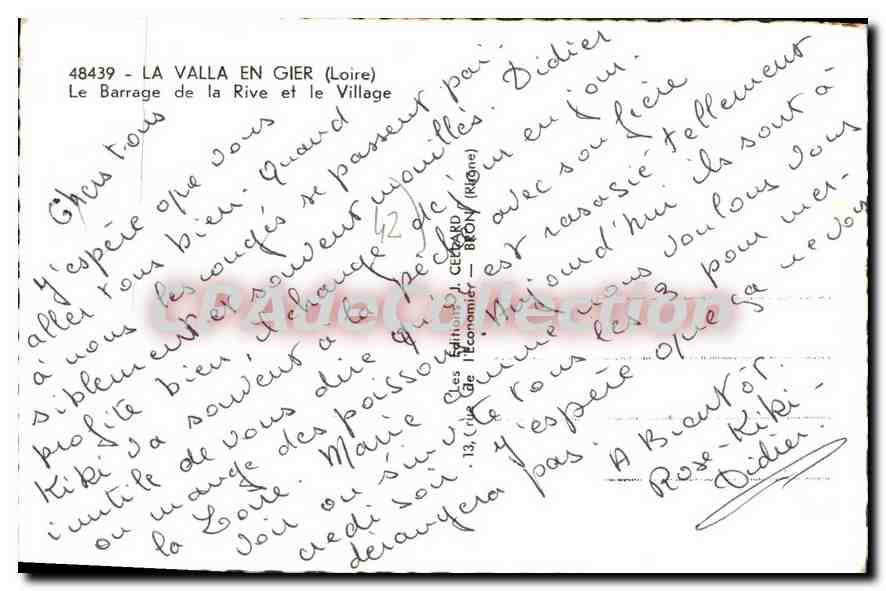 48439 - LA VALLA EN GIER (Loire)
Le Barrage de la Rive et le Village
Chers tous
J'espère que vous
allez tous bien. Quand
à nous les congés se passent pai-
siblement et souvent mouillés. Didier
profite bien, il change de jour en jour.
Kiki va souvent à la pêche avec son frère
inutile de vous dire qu'il est rasasié tellement
on mange des poissons. Aujourd'hui ils sont à
la Loire. Marie comme nous voulons vous
voir on s'invite tous les 3 pour mer-
credi soir. J'espère que ça ne vous
dérangera pas.
A Bientôt.
Rose-Kiki-
Didier.
42
Les Editions J. CELLARD
13, rue de l'Economie — BRON (Rhône)
CPADoCollection